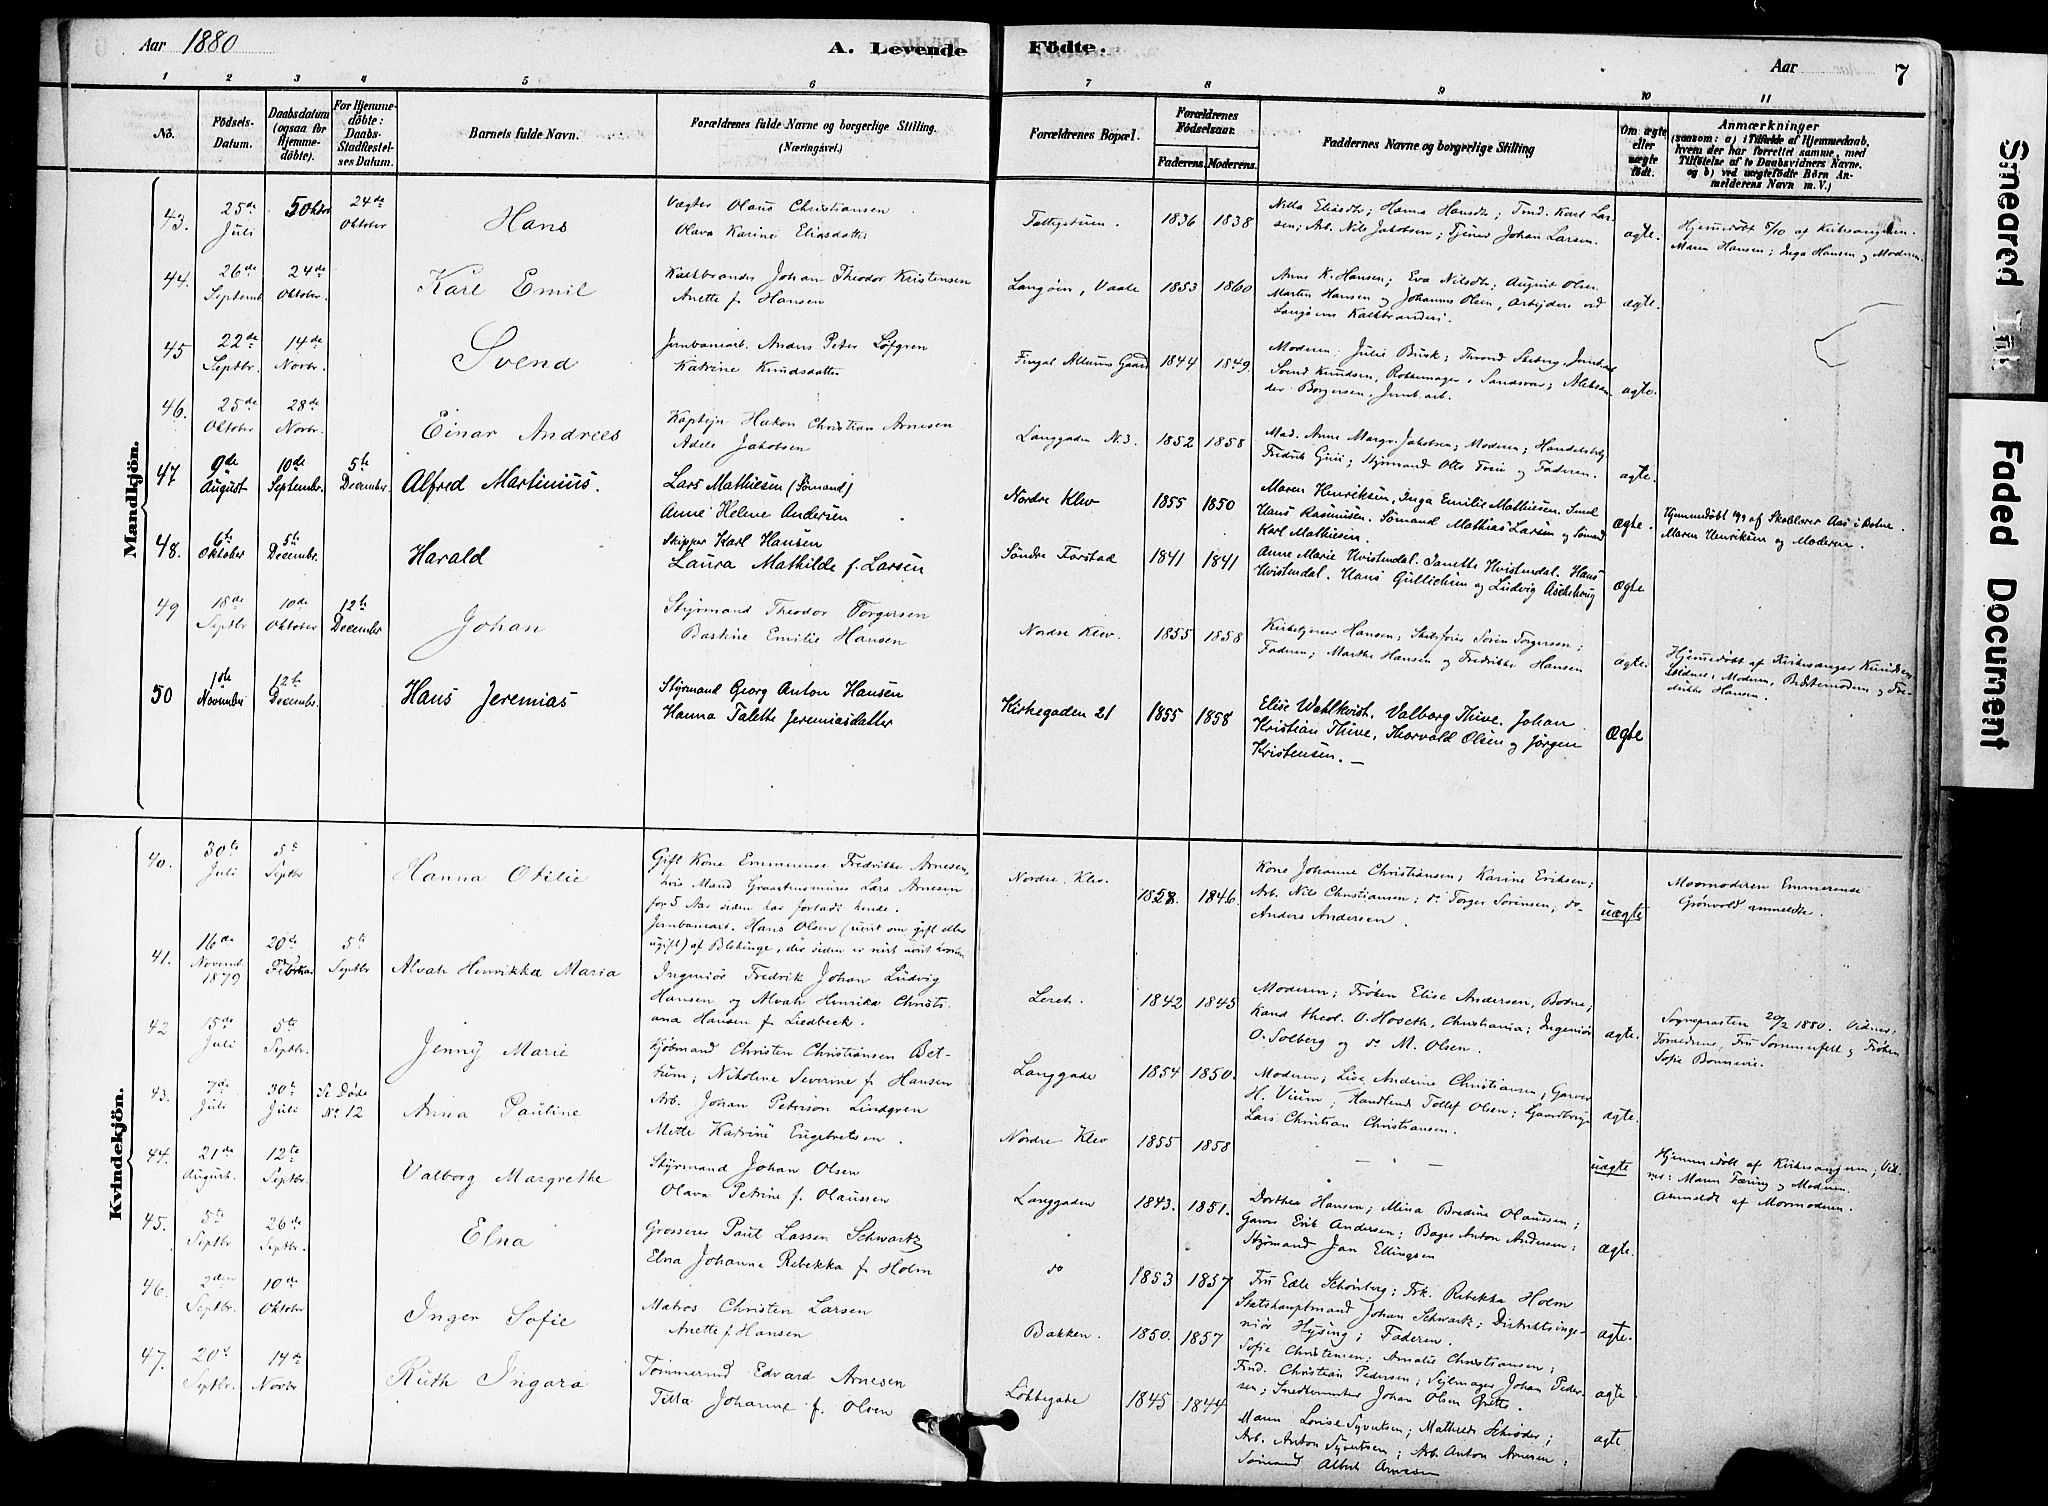 Aar 1880
A. Levende
Födte.
Aar
7
1 2 3 4 5 6 7 8 9 10 11
No.
Födsels-Datum.
Daabsdatum (ogsaa for Hjemmedöbte).
For Hjemmedöbte: Daabs-Stadfæstelses Datum.
Barnets fulde Navn.
Forældrenes fulde Navne og borgerlige Stilling.
(Næringsvei.)
Forældrenes Bopæl.
Forældrenes Födselsaar.
Faderens. Moderens.
Faddernes Navne og borgerlige Stilling
Om ægte eller uægte födt.
Anmærkninger
(saasom: a) i Tilfælde af Hjemmedaab,
hvem der har forrettet samme, med
Tilföielse af to Daabsvidners Navne.
og b) ved uægtefödte Börn Anmelderens Navn m. V.)
Mandkjön.
43. 25de Juli 5 Oktbr 24de Oktober Hans
Vægter Olaus Christiansen
Olava Karine Eliasdatter
1836 1838
Nella Eliasdtr; Hanna Hansdtr; Tmd. Karl Larsen; Arb. Nils Jakobsen; Tjener Johan Larsen.
ægte.
Hjemmedöbt 5/10 af Kirkesangeren.
Maren Hansen; Inga Hansen og Moderen.
44. 26de Septemb. 24de Oktober. Karl Emil
Kalkbrander Johan Theodor Kristensen
Anette f. Hansen
Langøen, Vaale 1853 1860
Anne K. Hansen; Eva Nilsdtr; August Olsen
Marten Hansen og Johannes Olsen, Arbejdere ved
Langøens Kalkbrænderi.
ægte.
45 22de Septbr. 14de Novbr. Svend
Jernbanearb. Anders Peter Löfgren
Katrine Knudsdatter
1844 1849.
Moderen; Julie Busk;
Svend Knudsen, Sandsvær;
Borgersen, Jernb. arb.
ægte.
46. 25de Oktober 28de Novbr. Einar Andreas
Kaptejn Hakon Christian Arnesen
Adele Jakobsen
Langgaden N. 3. 1852 1858
Mad. Anne Margr. Jakobsen; Moderen;
Styrmand Otto og Faderen.
ægte.
47 9de August 10de September. 5te December. Alfred Martinius.
Lars Mathiesen (Sömand)
Anne Helene Andersen
Nordre Klev 1855 1850
Maren Henriksen, Inga Emilie Mathiesen.
Hans Rasmussen. Sömand Mathias Larsen og Sömand
Karl Mathiesen.
ægte.
Hjemmedöbt 10/9 af Skolelærer Aas i Botne.
Maren Henriksen og Moderen.
48. 6te Oktober 5te Decembr. Harald
Skipper Karl Hansen
Laura Mathilde f. Larsen
Söndre Forstad 1841 1841
Anne Marie Hvistendal. Janette Hvistendal. Hans
Hvistendal. Hans Gullichsen og Ludvig Aschehoug
ægte
49 18de Septbr 10de Oktober 12te December Johan
Styrmand Theodor Torgersen
Bastine Emilie Hansen
Nordre Klev. 1855 1858
Kirketjener Hansen; Skibsfører Sören Torgersen;
Faderen; Marthe Hansen og Fredrikke Hansen
ægte.
Hjemmedöbt af Kirkesanger Knudsen
Vidner: Moderen, Bedstemoderen og Fredrikke Hansen.
50 1ste November 12te Decembr. Hans Jeremias
Styrmand Georg Anton Hansen
Hanna Talette Jeremiasdatter
Kirkegaden 21 1855 1858
Elise Wahlkvist. Valborg Thive. Johan
Kristian Thive, Thorvald Olsen og Jörgen
Kristensen. —
Ægte
Kvindekjön.
40. 30te Juli 5te Septbr Hanna Otilie
Gift Kone Emmerense Fredrikke Arnesen,
hvis Mand Graastensmurer Lars Arnesen
for 5 Aar siden har forladt hende.
Jernbanearb. Hans Olsen (uvist om gift eller
ugift) af Blekinge, der siden er rejst uvist hvorhen
Nordre Klev. 1828. 1846.
Kone Johanne Christiansen; Karine Eriksen;
Arb. Nils Christiansen; do Torger Sörensen; do
Anders Andersen.
uægte
Mormoderen Emmerense
Grönvold anmeldte.
41. 16de Novemb. 1879 20de Februar 5te Septbr Alvah Henrikka Maria
Ingeniör Fredrik Johan Ludvig
Hansen og Alvah Henrika Christiana Hansen f. Liedbeck.
Leret. 1842 1845
Moderen; Fröken Elise Andersen, Bodne;
Kand. theol. O. Hoseth, Christiania; Ingeniör
O. Solberg og do M. Olsen.
ægte.
Sognepresten 20/2 1880. Vidner:
Forældrene, Fru Sommerfelt og Fröken
Sofie Bonnevie.
42 15de Juli 5te Septbr. Jenny Marie
Kjöbmand Christen Christiansen Bettum; Nikoline Severine f. Hansen
Langgade 1854 1850.
Moderen; Lise Andrine Christiansen; Garver
H. Viuum; Handlende Tollef Olsen; Gaardbruger
Lars Christian Christiansen.
ægte.
43. 7de Juli 30te Juli Se Døde No 12 Anna Pauline
Arb. Johan Peterson Lindgren
Mette Katrine Engebretsen.
Nordre Klev 1855 1858
— " —
uægte
Hjemmedöbt af Kirkesangeren; Vidner: Maren Færing og Moderen.
Anmeldt af Mormoderen.
44. 21de August. 12te Septbr. Valborg Margrethe
Styrmand Johan Olsen
Olava Petrine f. Olaussen
Langgaden 1843. 1851.
Dorthea Hansen; Mina Bredine Olaussen;
Garver Erik Andersen; Bager Anton Andersen;
Styrmand Jan Ellingsen
ægte.
45. 5te Septbr 26de Septbr. Elna
Grosserer Paul Lassen Schwartz
Elna Johanne Rebekka f. Holm
do 1853 1857
Fru Edle Schönberg; Frk. Rebekka Holm
Statshauptmand Johan Schwartz; Distriktsingeniör Hysing; Faderen.
ægte.
46. 2den Septbr. 10de Oktober Inger Sofie
Matros Christen Larsen
Anette f. Hansen
Bakken. 1850. 1857
Sofie Christensen; Amalie Christiansen;
Tmd. Christian Pedersen; Sejlmager Johan Pedersen; Smedemester Johan Olsen.
ægte.
47. 20de Septbr. 14de Novbr Ruth Ingara
Tömmermd Edvard Arnesen
Tilla Johanne f. Olsen
Løkkegade 1845 1844
Maren Lovise Syvertsen; Mathilde Schröder;
Arb. Anton Syvertsen; Arb. Anton Arnesen;
Sömand Albert Arnesen
ægte
Smeared Tak
Faded Document